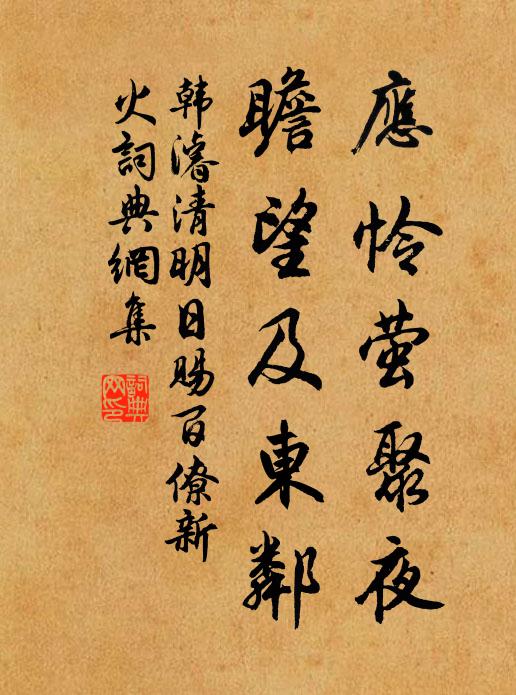 應怜萤聚夜
瞻望及東鄰
韩濬清明日賜百僚新
火詞典網集
詞典
网印